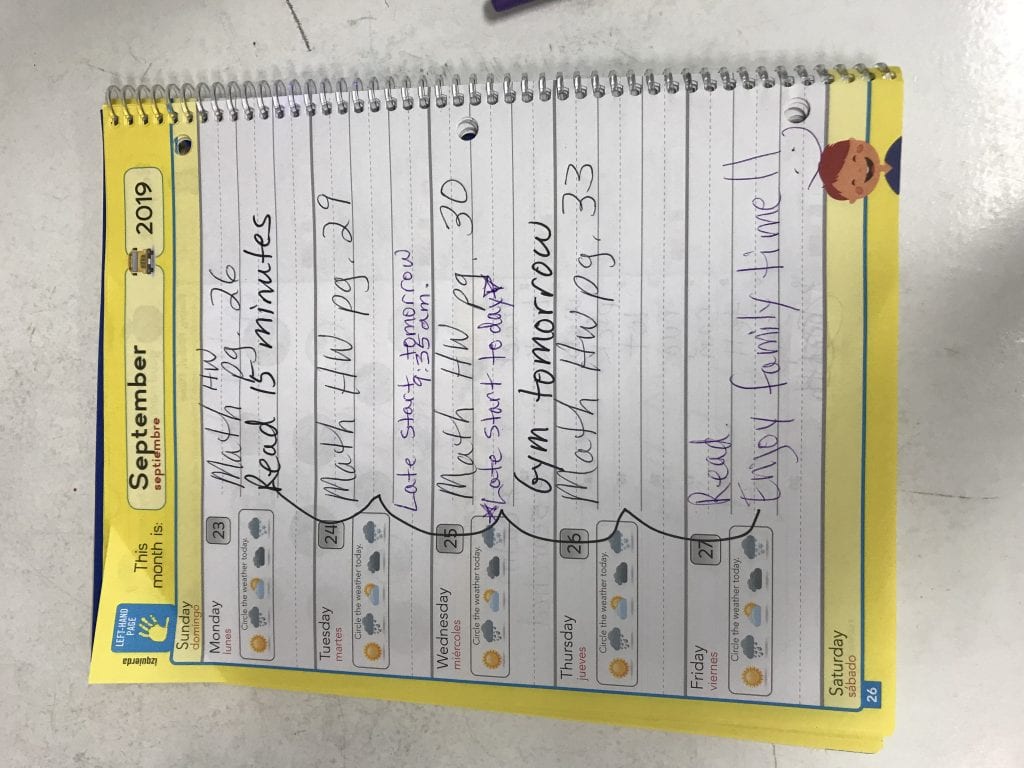 LEFT-HAND
PAGE
izquierda
This
month is:
September
septiembre
2019
Sunday
domingo
Monday
lunes
23
Circle the weather today.
Math HW
Math pg. 26
Read 15 minutes
Tuesday
martes
24
Circle the weather today.
Math HW pg. 29
Late Start tomorrow
9:35 am.
Wednesday
miércoles
25
Circle the weather today.
Math HW pg. 30
*Late Start today*
Gym tomorrow
Thursday
jueves
26
Circle the weather today.
Math HW pg. 33
Friday
viernes
27
Circle the weather today.
Read.
Enjoy family time!!
:)
Saturday
sábado
26